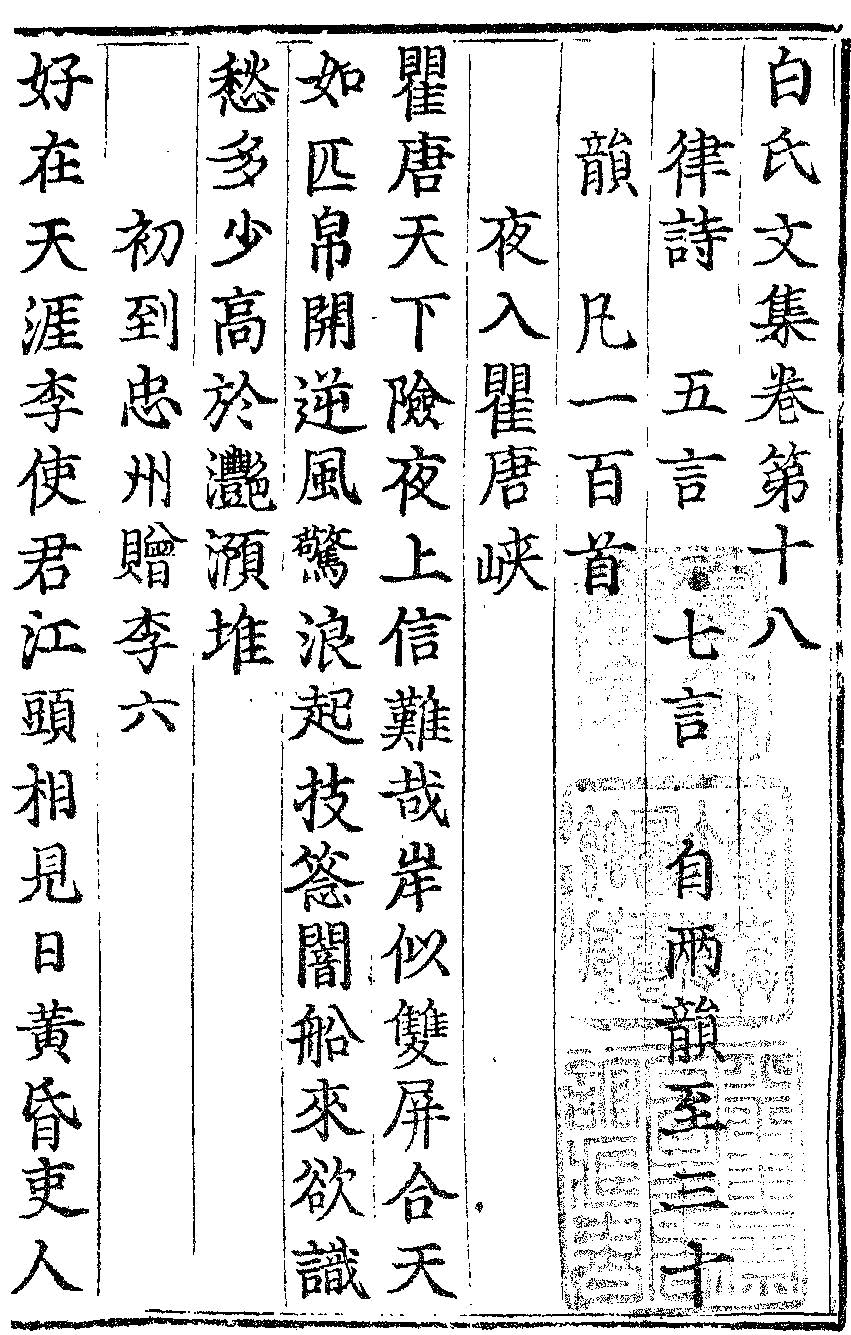 白氏文集卷第十八
律詩 五言 七言 自兩韻至三十
韻 凡一百首
夜入瞿唐峽
瞿唐天下險夜上信難哉岸似雙屏合天
如匹帛開逆風驚浪起技䇿闇船來欲識
愁多少高於灧澦堆
初到忠州贈李六
好在天涯李使君江頭相見日黃昏吏人